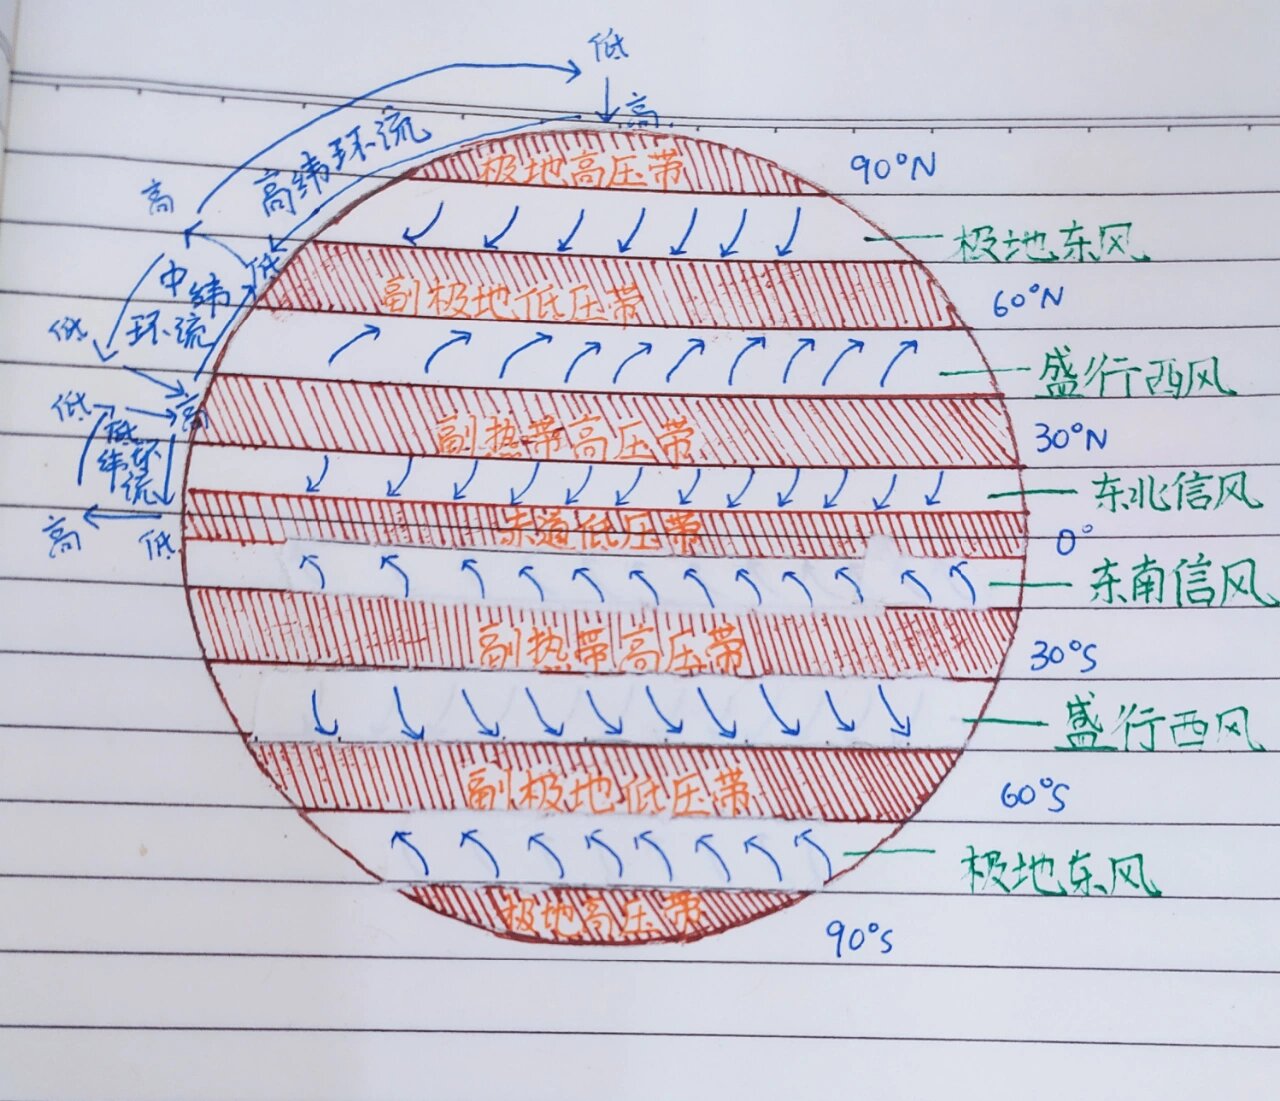 低
高
高纬环流
极地高压带
90°N
高
极地东风
低
中纬
环流
副极地低压带
60°N
低
盛行西风
高
低
低
纬环
流
副热带高压带
30°N
东北信风
高
低
赤道低压带
0°
东南信风
副热带高压带
30°S
盛行西风
副极地低压带
60°S
极地东风
极地高压带
90°S